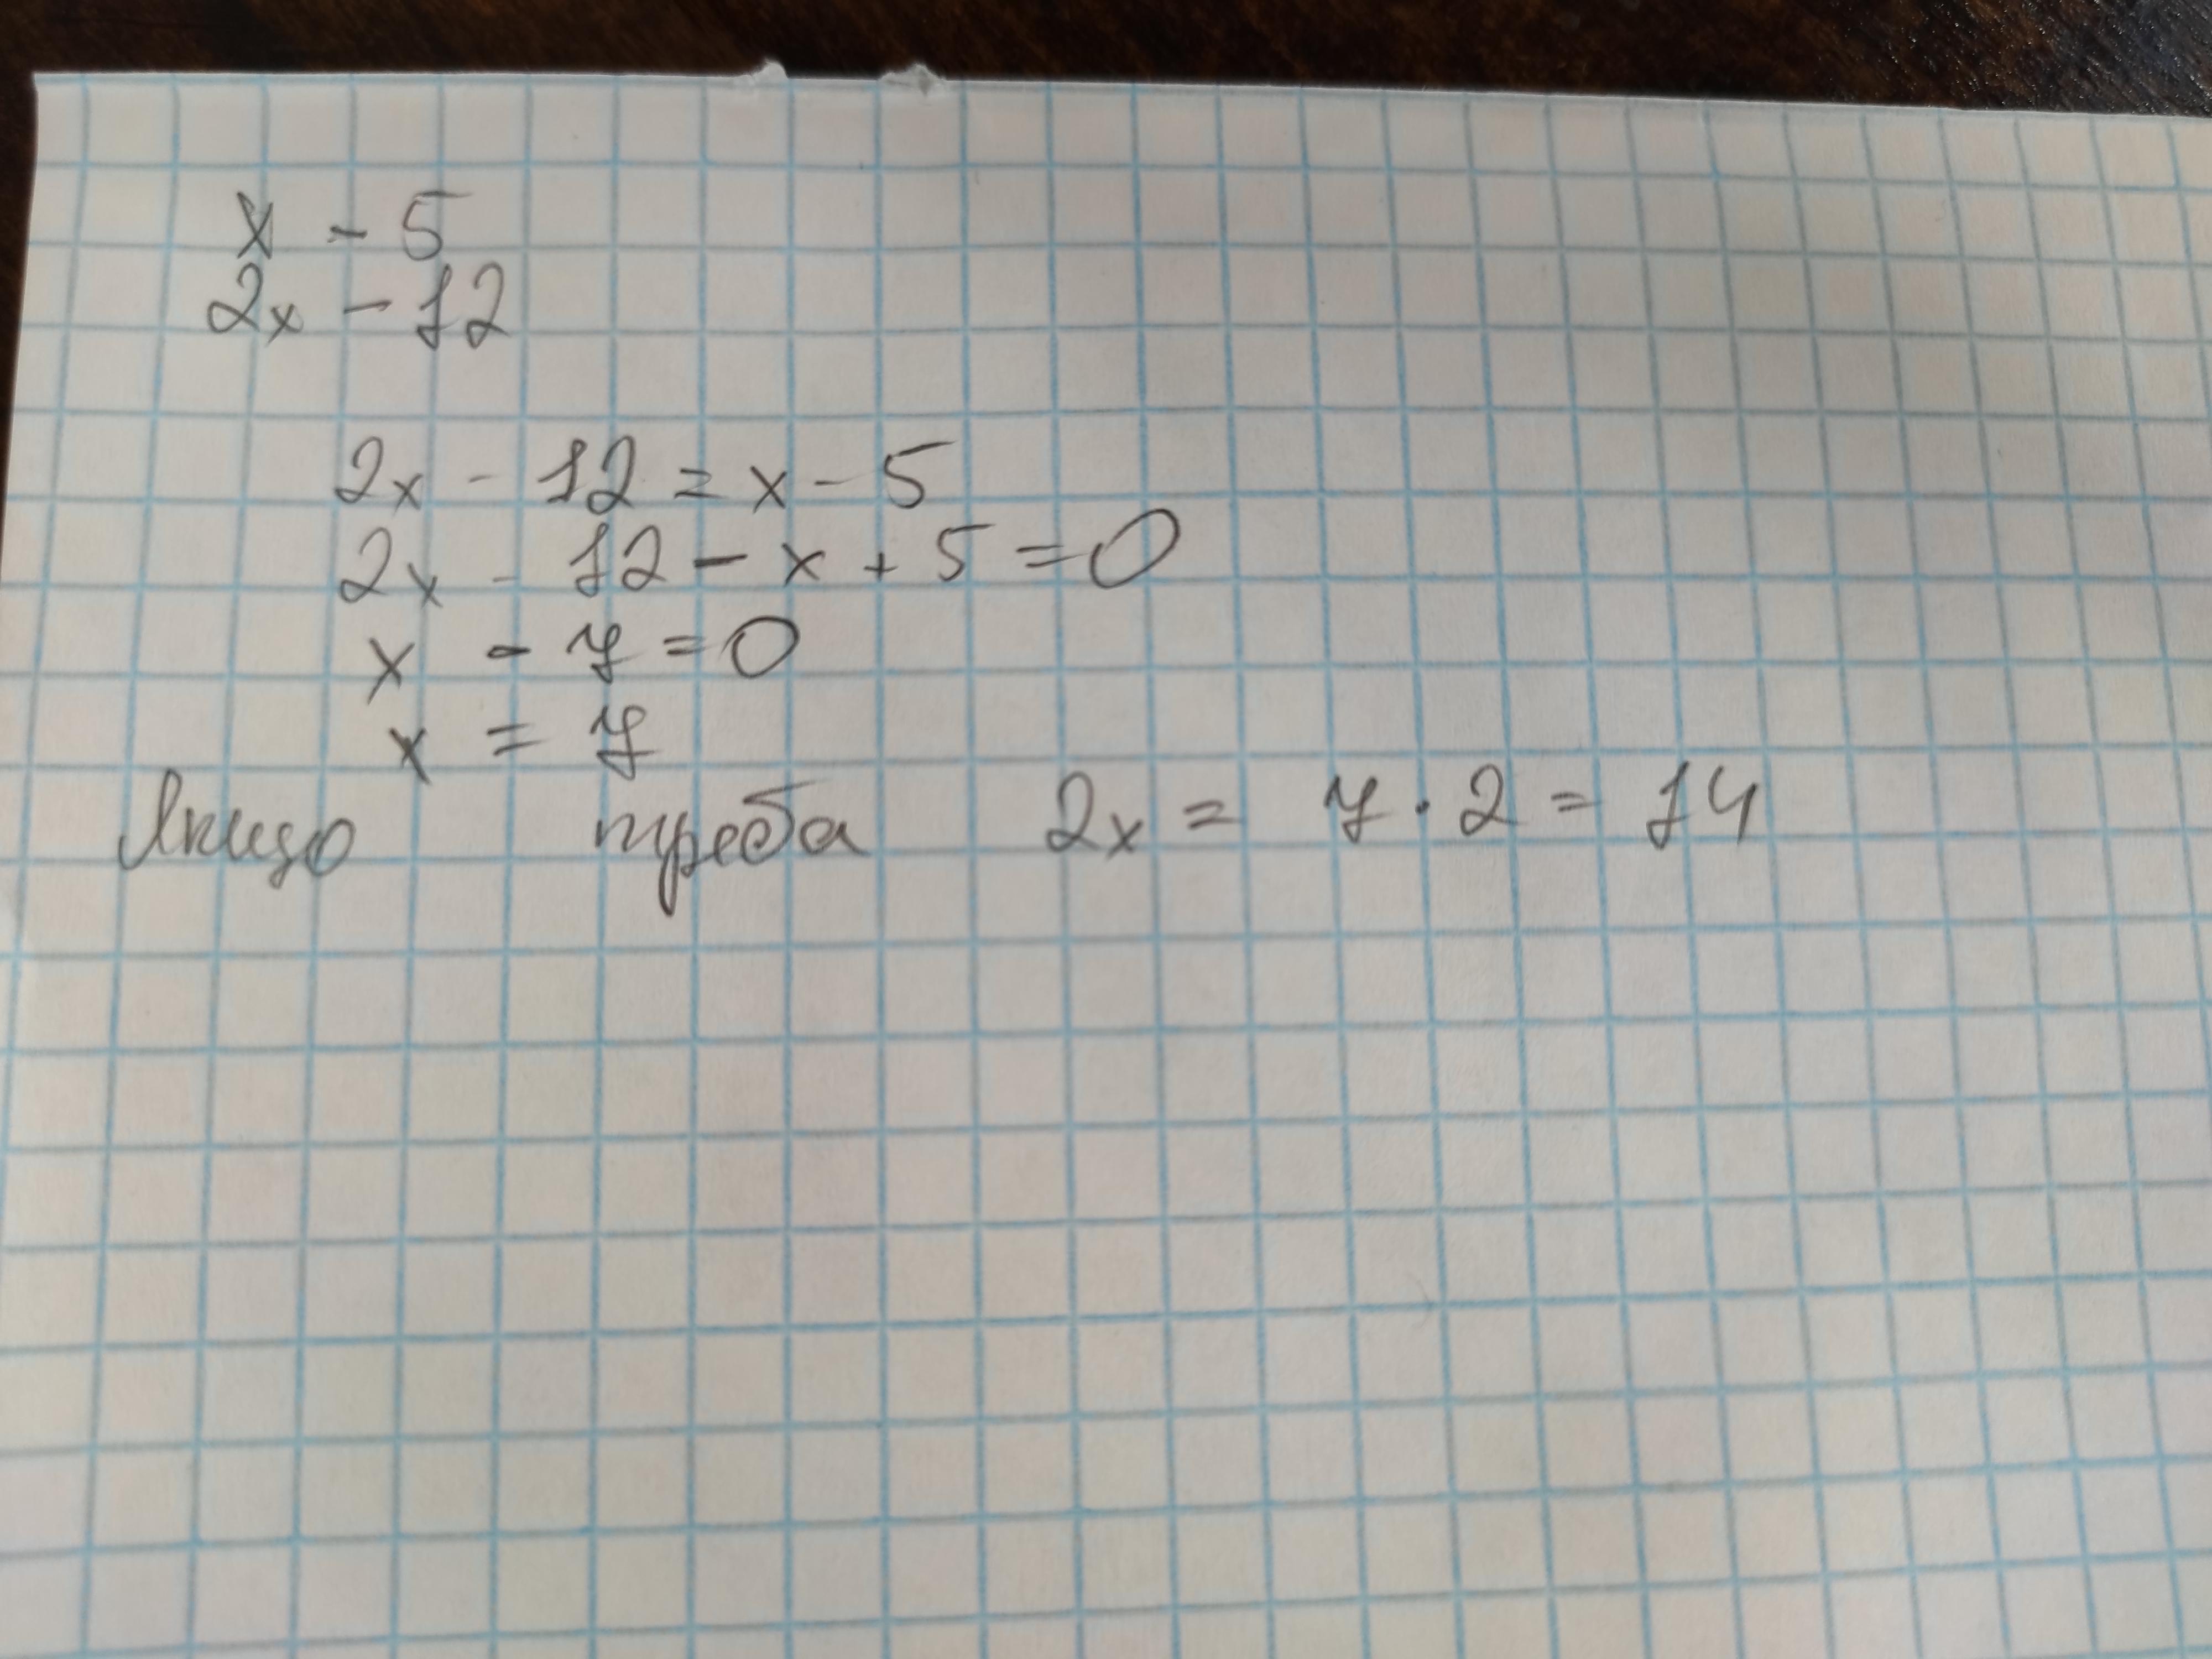 x - 5
2x - 12
2x - 12 = x - 5
2x - 12 - x + 5 = 0
x - 7 = 0
x = 7
Якщо треба 2x = 7 · 2 = 14